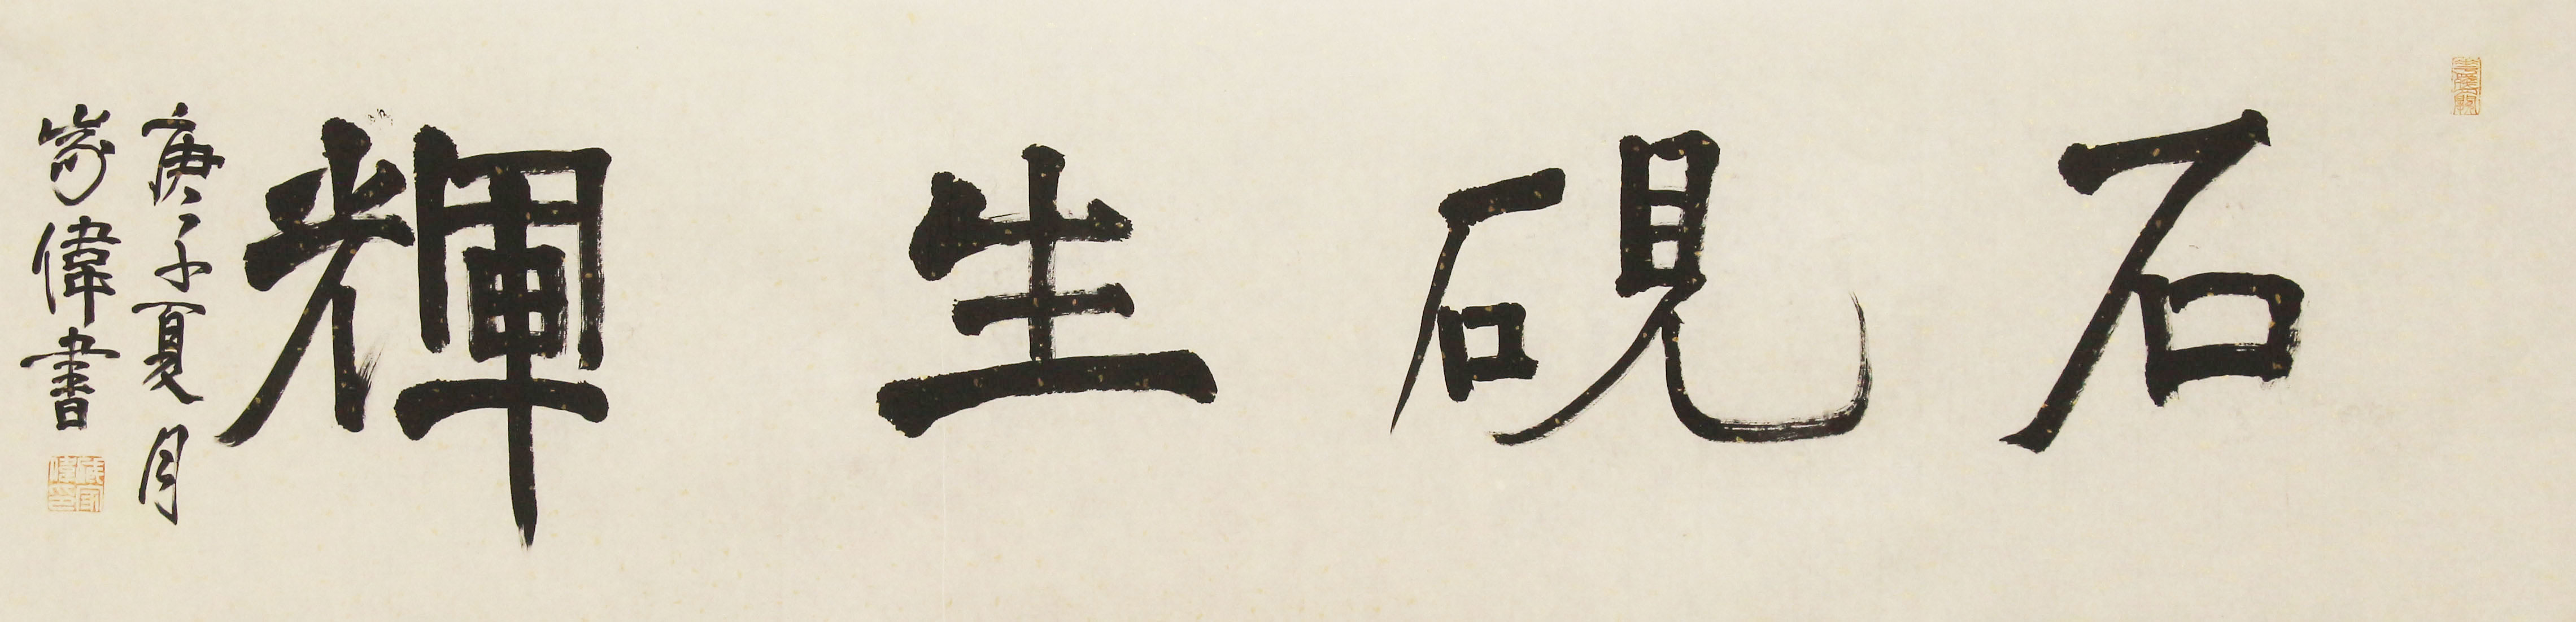 石硯生輝
庚子夏月
家偉書